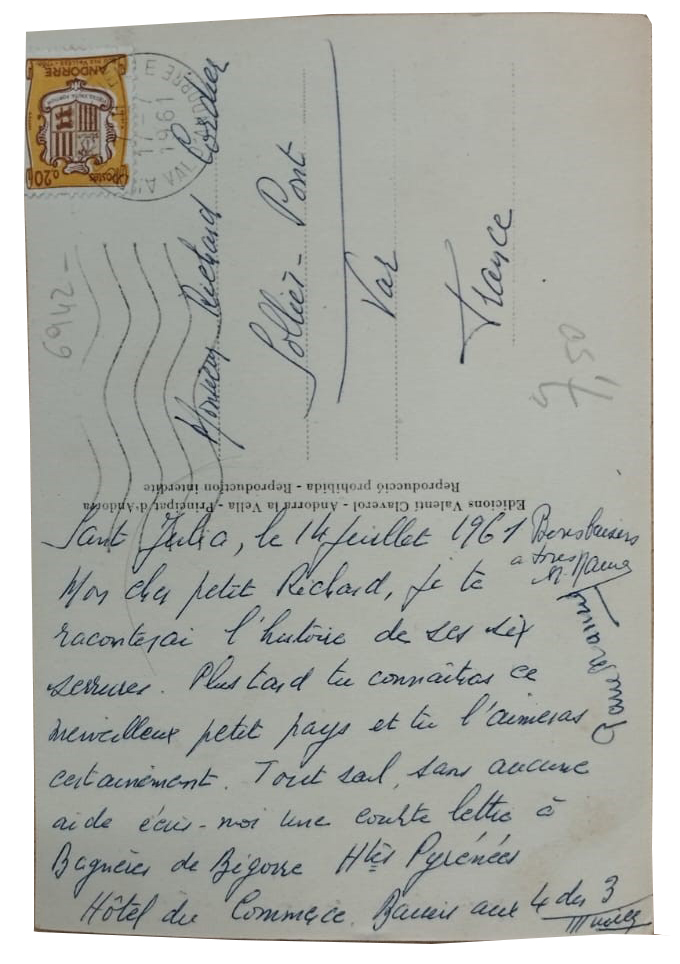 ANDORRE
POSTES
0,20
17-7
1961
6942-
Monsieur Richard Cordier
Solliès-Pont
Var
France
7,50
Edicions Valenti Claverol - Andorra la Vella - Principat d'Andorra
Reproducció prohibida - Reproduction interdite
Sant Julia, le 14 juillet 1961
Mon cher petit Richard, je te
raconterai l'histoire de ses six
serrures. Plus tard tu connaîtras ce
merveilleux petit pays et tu l'aimeras
certainement. Tout seul, sans aucune
aide écris-moi une courte lettre à
Bagnères de Bigorre Htes Pyrénées
Hôtel du Commerce. Baisers aux 4 des 3
Bons baisers
a tres